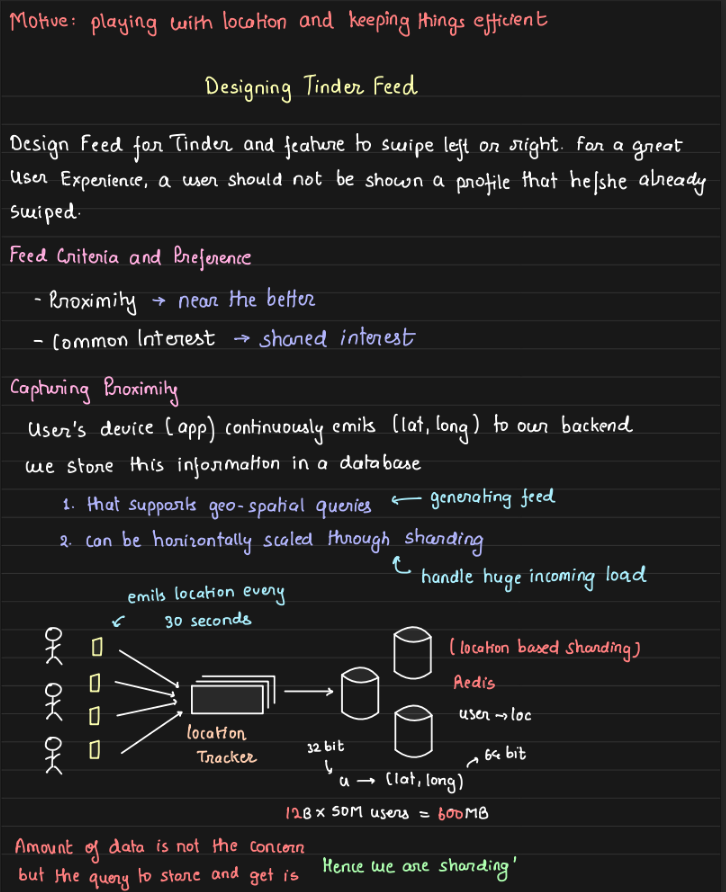 Motive: playing with location and keeping things efficient
Designing Tinder Feed
Design Feed for Tinder and feature to swipe left or right. For a great
User Experience, a user should not be shown a profile that he/she already
swiped.
Feed Criteria and Preference
- Proximity → near the better
- Common Interest → shared interest
Capturing Proximity
User's device (app) continuously emits (lat, long) to our backend
we store this information in a database
1. that supports geo-spatial queries ← generating feed
2. can be horizontally scaled through sharding
handle huge incoming load
emits location every
30 seconds
(location based sharding)
Redis
user → loc
location
Tracker
32 bit
64 bit
u → (lat, long)
12B x 50M users = 600MB
Amount of data is not the concern
but the query to store and get is
Hence we are sharding'